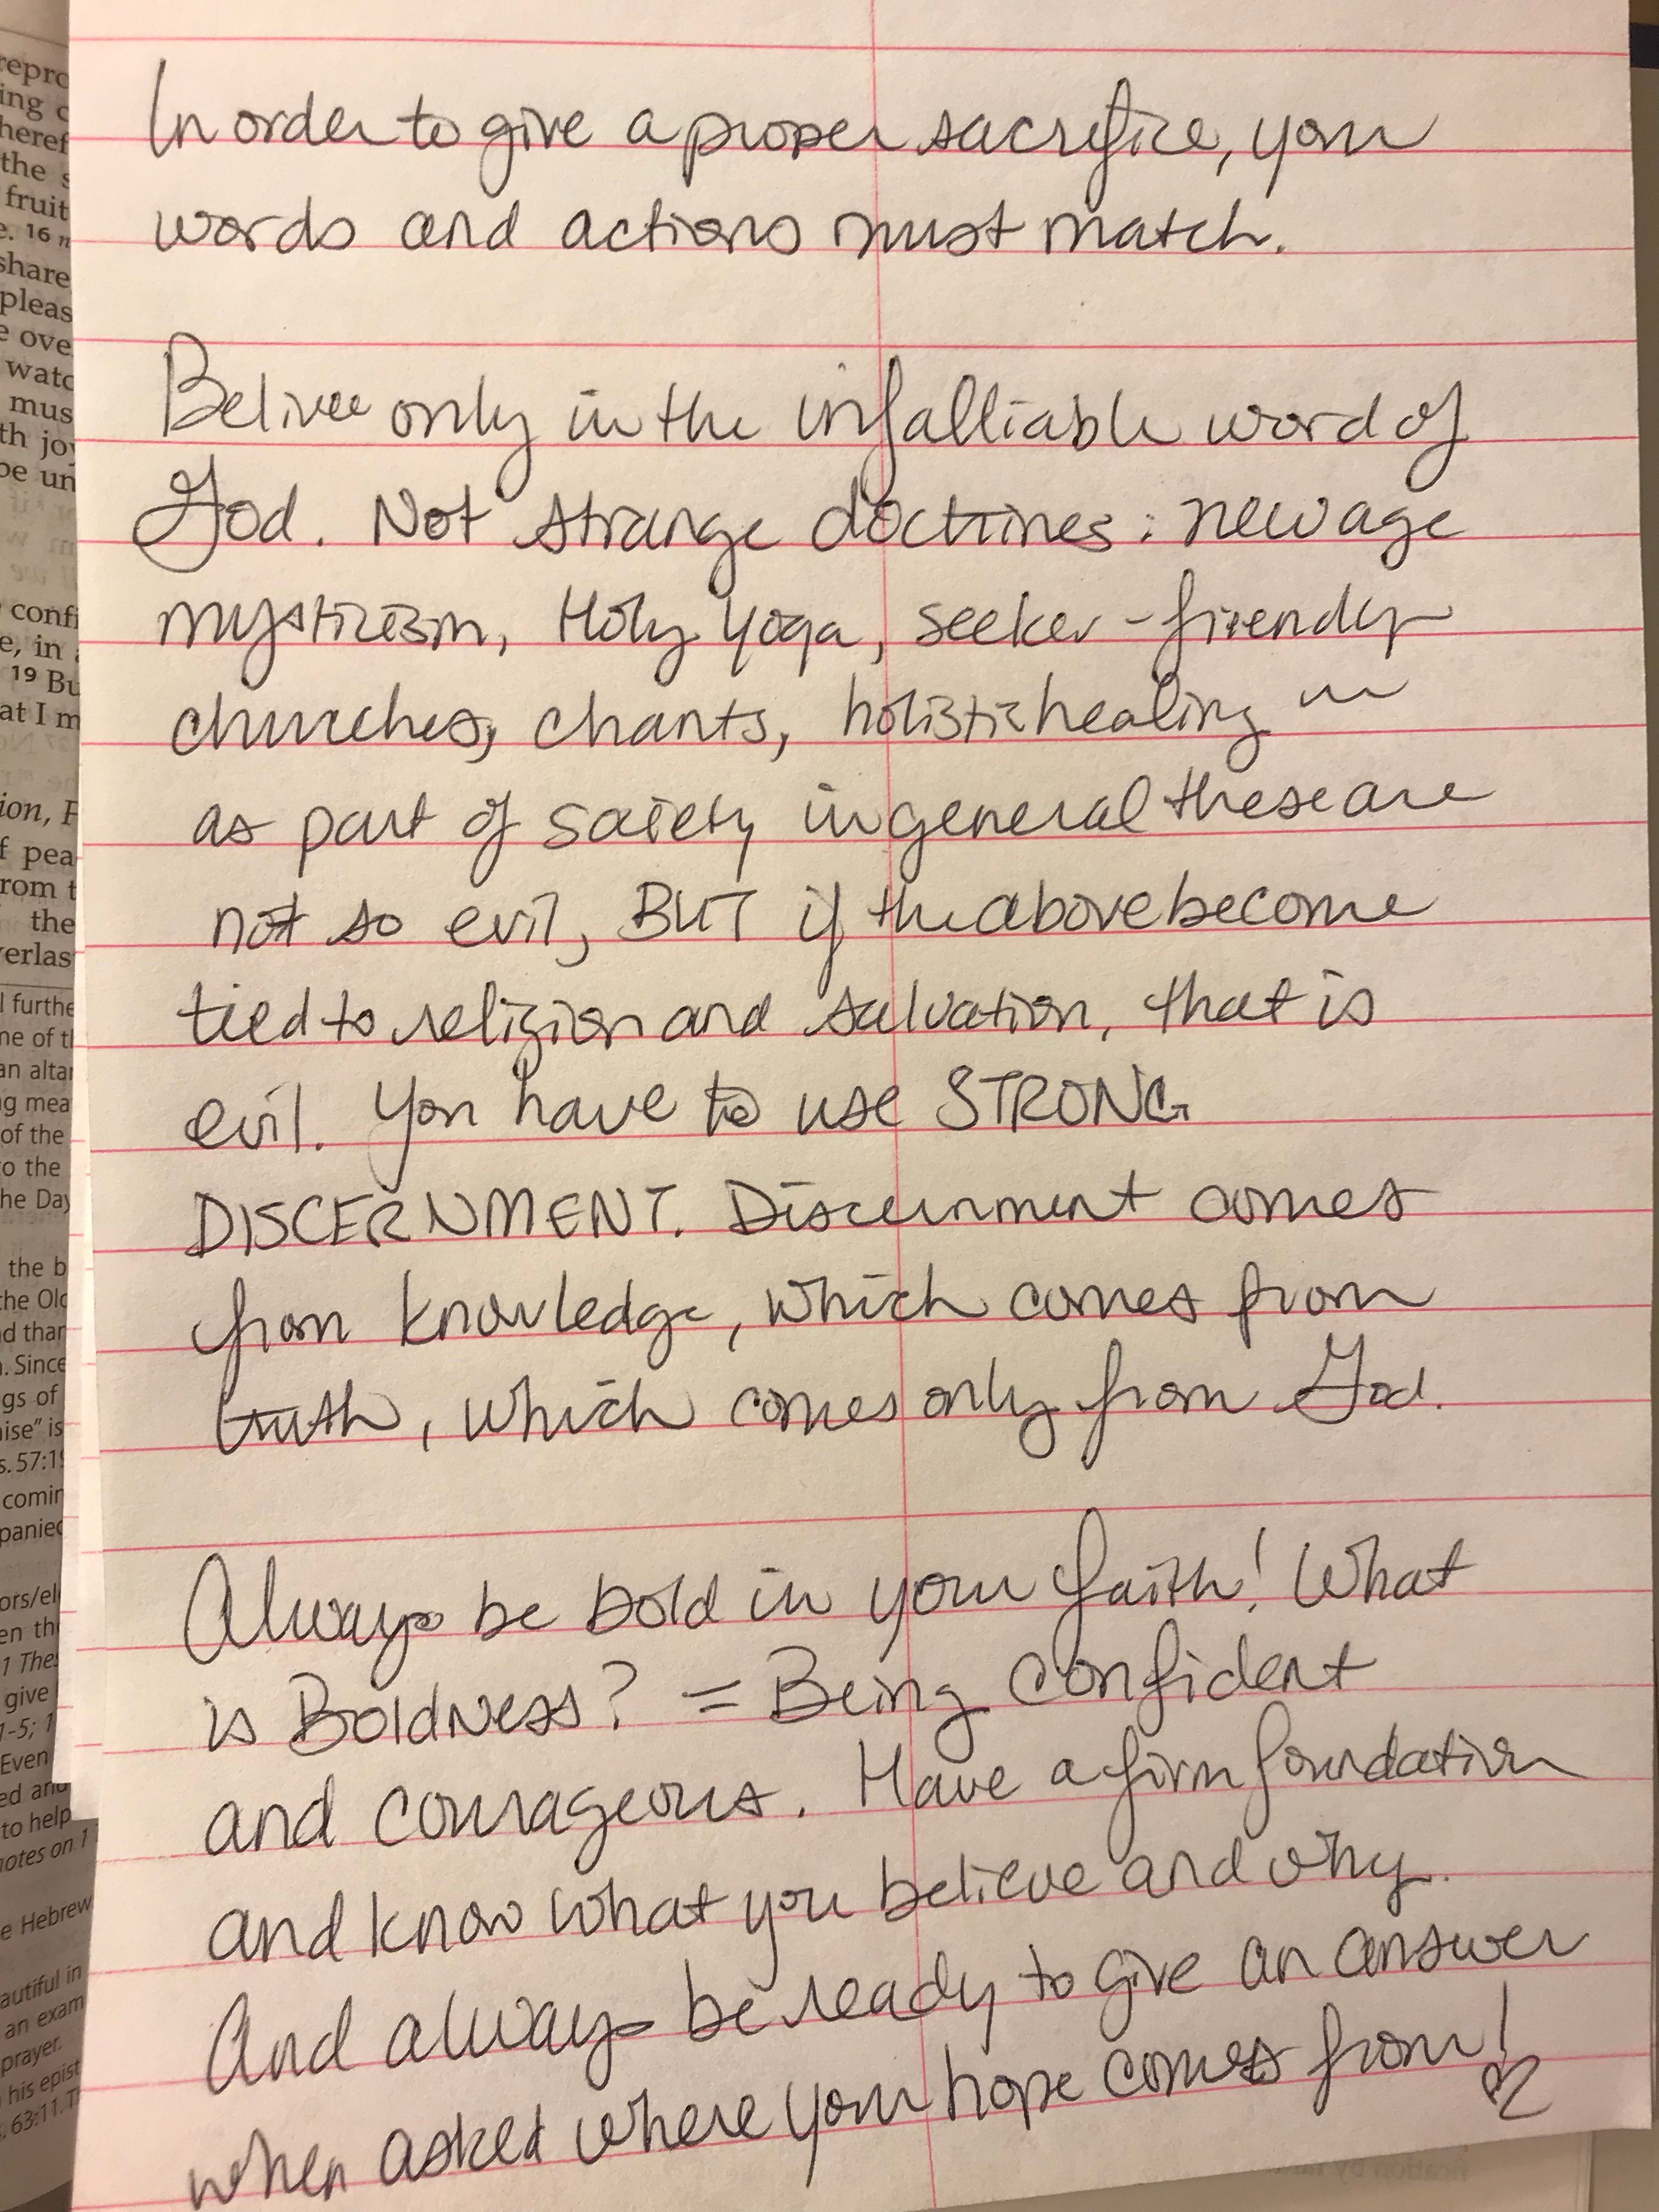 In order to give a proper sacrifice, your
words and actions must match.
Belivee only in the infalliable word of
God. Not strange doctrines: new age
mysticism, Holy Yoga, seeker-friendly
churches, chants, holistic healing ~
as part of society in general these are
not so evil, BUT if the above become
tied to religion and salvation, that is
evil. You have to use STRONG
DISCERNMENT. Discernment comes
from knowledge, which comes from
truth, which comes only from God.
Always be bold in your faith! What
is Boldness? = Being confident
and courageous. Have a firm foundation
and know what you believe and why.
And always be ready to give an answer
when asked where your hope comes from!
fruit
e. 16
share
pleas
e ove
watc
mus
th joy
be un
confi
e, in
19 Bu
at I m
ion, P
f pea
rom t
the
verlas
l furthe
ne of t
an altar
g mea
of the
o the
he Day
the b
the Old
d than
. Since
gs of
ise" is
s. 57:19
comin
panied
ors/eld
en the
1 Thes
give
1-5; 1
Even
ed and
to help
notes on 1
e Hebrew
autiful in
an exam
prayer.
his epist
. 63:11. T